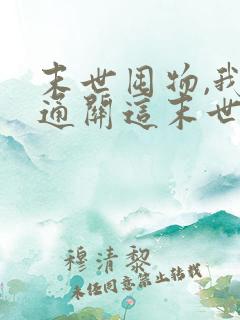 末世囤物,我
通關這末世
穆清黎
未经同意禁止转载